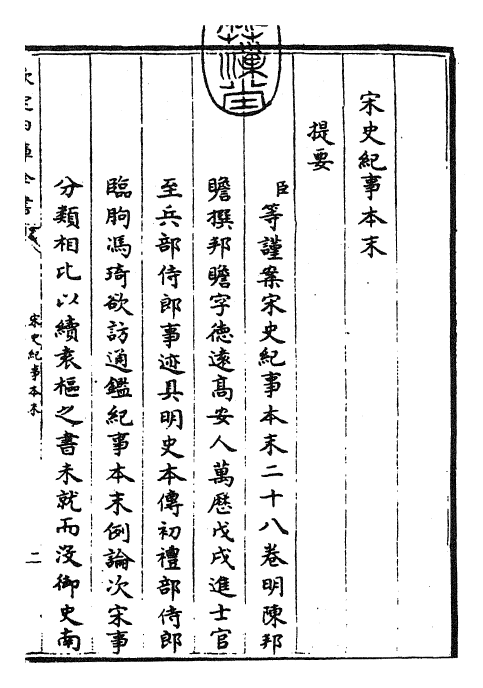 宋史紀事本末
提要
臣等謹案宋史紀事本末二十八卷明陳邦
瞻撰邦瞻字德遠髙安人萬厯戊戌進士官
至兵部侍郎事迹具明史本傳初禮部侍郎
臨朐馮琦欲訪通鑑紀事本末例論次宋事
分類相比以續袁樞之書未就而沒御史南
欽定四庫全書
宋史紀事本末
二